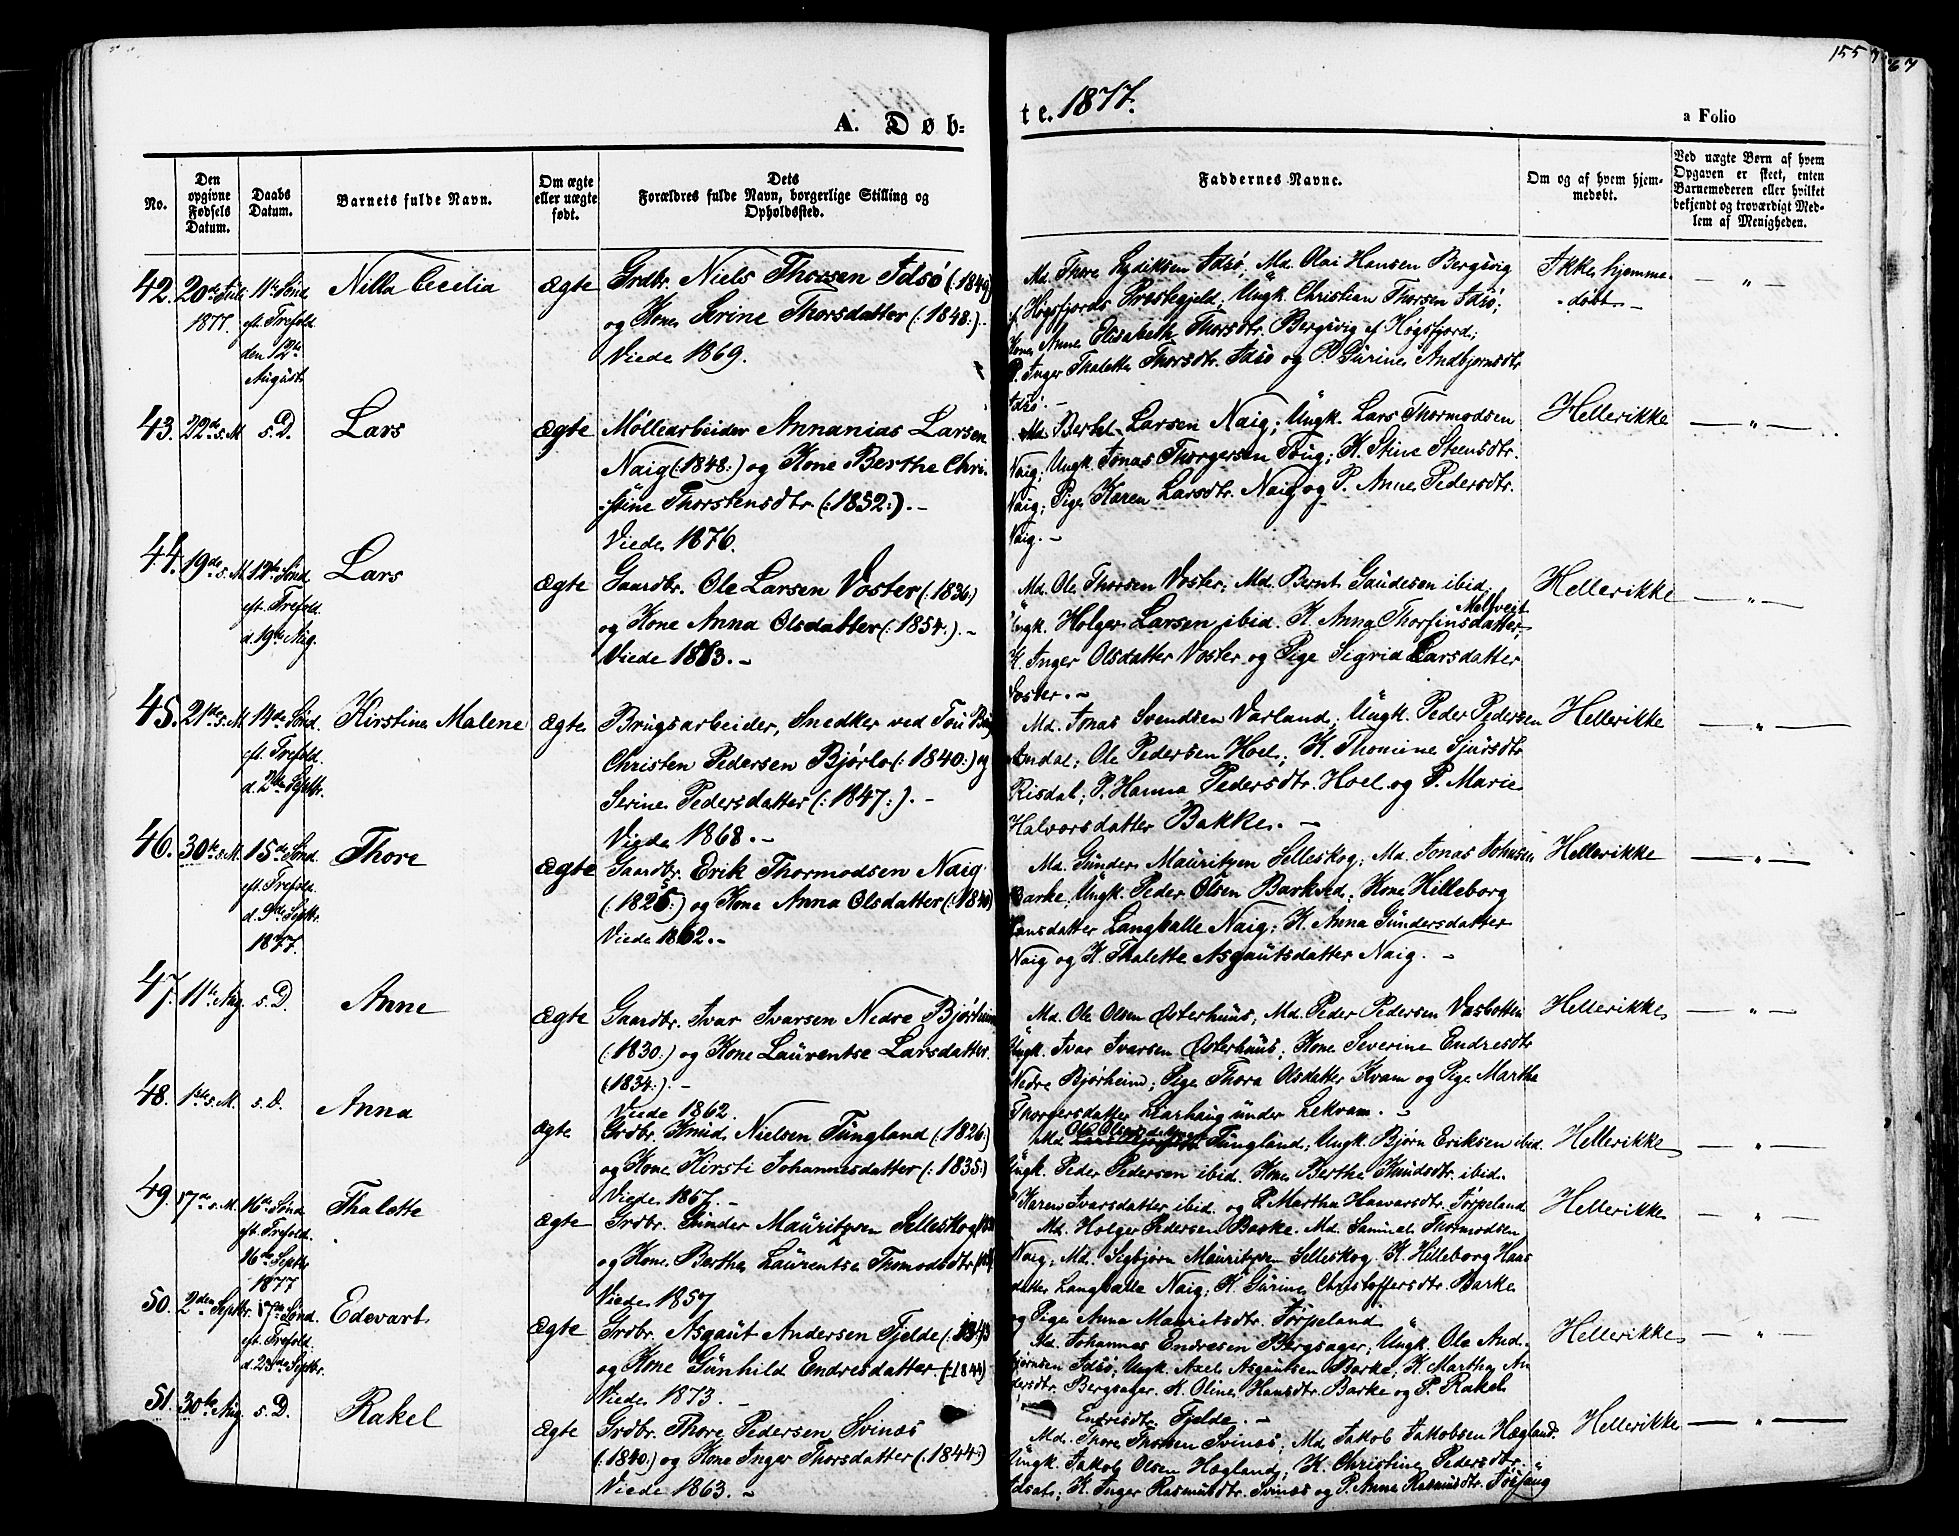 155
67
A. Døb:
te. 1877.
a Folio
No.
Den opgivne Fødsels Datum.
Daabs Datum.
Barnets fulde Navn.
Om ægte eller uægte født.
Dets
Forældres fulde Navn, borgerlige Stilling og Opholdssted.
Faddernes Navne.
Om og af hvem hjemmedøbt.
Ved uægte Børn af hvem Opgaven er skeet, enten Barnemoderen eller hvilket bekjendt og troværdigt Medlem af Menigheden.
42. 20de Juli 1877. 11te Sønd. eft. Trefold. den 12te August
Nilla Cecilia
Ægte
Grdbr. Niels Thorsen Idsø (:1849)
og Kone Serine Thorsdatter (:1848:).
Viede 1869.
Md. Thore Lydiksen Idsø, Md. Olai Hansen Bergsvig
af Høgsfjords Præstegjeld; Ungk. Christian Thorsen Idsø;
Kone Anne Elisabeth Thorsdtr. Bergsvig af Høgsfjord;
P. Inger Thalette Thorsdtr. Idsø og P. Gurine Andbjørnsdtr
Idsø.
Ikke hjemme-
døbt
— " —
43. 22de s. M. s. D.
Lars
Ægte
Møllearbeider Annanias Larsen
Naig (:1848:) og Kone Berthe Chri-
stine Thorstensdtr (:1852:).
Viede 1876.
Md. Berthel Larsen Naig; Ungk. Lars Thormodsen
Naig; Ungk. Jonas Thorgersen Toug; K. Stine Steensdtr.
Naig; Pige Karen Larsdtr. Naig og P. Anne Pedersdtr.
Naig.
Hellerikke
— " —
44. 19de s. M. 12te Sønd. eft. Trefold. d. 19de Aug.
Lars
Ægte
Gaardbr. Ole Larsen Voster (:1836:)
og Kone Anna Olsdatter (:1854:).
Viede 1873.
Md. Ole Thorsen Voster; Md. Bernt Gaudesen ibid;
Ungk. Holger Larsen ibid. K. Anna Thorfinsdatter
K. Inger Olsdatter Voster og Pige Sigrid Larsdatter
Voster.
Hellerikke
— " —
45. 21de s. M. 14de Sønd. eft. Trefold. d. 2den Septbr.
Kirstine Malene
Ægte
Brugsarbeider, Snedker ved Tou Brug
Christen Pedersen Bjørlo (:1840:) og
Serine Pedersdatter (:1847:).
Viede 1868.
Md. Jonas Svendsen Varland; Ungk. Peder Pedersen
Amdal; Ole Pedersen Hoel; K. Thomine Sjursdtr
Risdal; P. Hanna Pedersdtr. Hoel og P. Marie
Halvorsdatter Bakke.
Hellerikke
— " —
46. 30te s. M. 15de Sønd. eft. Trefold. d. 9de Septbr. 1877.
Thore
Ægte
Gaardbr. Erik Thormodsen Naig
(:1825:) og Kone Anna Olsdatter (:1840)
Viede 1862.
Md. Gunder Mauritzen Selleskog; Md. Jonas Johnsen
Barke; Ungk. Peder Olsen Barkved; Kone Hilleborg
Hansdatter Langballe Naig; K. Anna Gundersdatter
Naig og K. Thalette Asgautsdatter Naig.
Hellerikke
— " —
47. 11te Aug. s. D.
Anne
Ægte
Gaardbr. Ivar Ivarsen Nedre Bjørheim
(:1830:) og Kone Laurentse Larsdatter
(1834:).
Viede 1862.
Md. Ole Olsen Østerhuus; Md. Peder Pedersen Vasbotten
Ungk. Ivar Ivarsen Østerhuus; Kone Severine Endresdtr
Nedre Bjørheim; Pige Thora Olsdatter Kvam og Pige Martha
Thorgersdatter Liarhaug under Lekvam.
Hellerikke
— " —
48. 1ste s. M. s. D.
Anna
Ægte
Grdbr. Knud Nielsen Tungland (:1826:)
og Kone Kirsti Johannesdatter (:1835:)
Viede 1867.
Md. Tungland; Ungk. Bjørn Eriksen ibid.
Ungk. Peder Pedersen ibid. Kone Berthe Knudsdtr. ibid.
P. Karen Ivarsdatter ibid. og P. Martha Halvarsdtr. Jørpeland
Hellerikke
— " —
49. 17de s. M. 16de Sønd. eft. Trefold. 16de Septbr. 1877
Thalette
Ægte
Grdbr. Gunder Mauritzen Selleskog
og Kone Bertha Laurentse Thomodsdtr
Viede 1857
Md. Holger Pedersen Barke. Md. Samuel Thormodsen
Naig; Md. Sigbjørn Mauritzen Selleskog. K. Hilleborg Hans
datter Langballe Naig; K. Gurine Christoffersdtr. Barke
og Pige Anna Mauritsdtr. Jørpeland
Hellerikke
— " —
50. 2den Septbr. 17de Sønd. eft. Trefold. d. 23de Septbr.
Edevart
Ægte
Grdbr. Asgaut Andersen Fjelde (:1843
og Kone Gunhild Endresdatter (:1844)
Viede 1873.
Md. Johannes Endresen Bergsager; Ungk. Ole And-
bjørnsen Idsø; Ungk. Axel Asgautsen Barke; K. Martha An
dersdtr. Bergsager. K. Oline Hansdtr. Barke og P. Rakel
Endresdtr. Fjelde.
Hellerikke
— " —
51. 30te Aug. s. D.
Rakel
Ægte
Grdbr. Thore Pedersen Svines
(:1840:) og Kone Inger Thorsdatter (:1844:)
Viede 1863.
Md. Thore Thorsen Svines; Md. Jakob Jakobsen Hægland.
Ungk. Jakob Olsen Hægland; K. Christine Pedersdtr.
Idsal; K. Inger Rasmusdtr. Svines og P. Anne Rasmusdtr.
Hellerikke
— " —